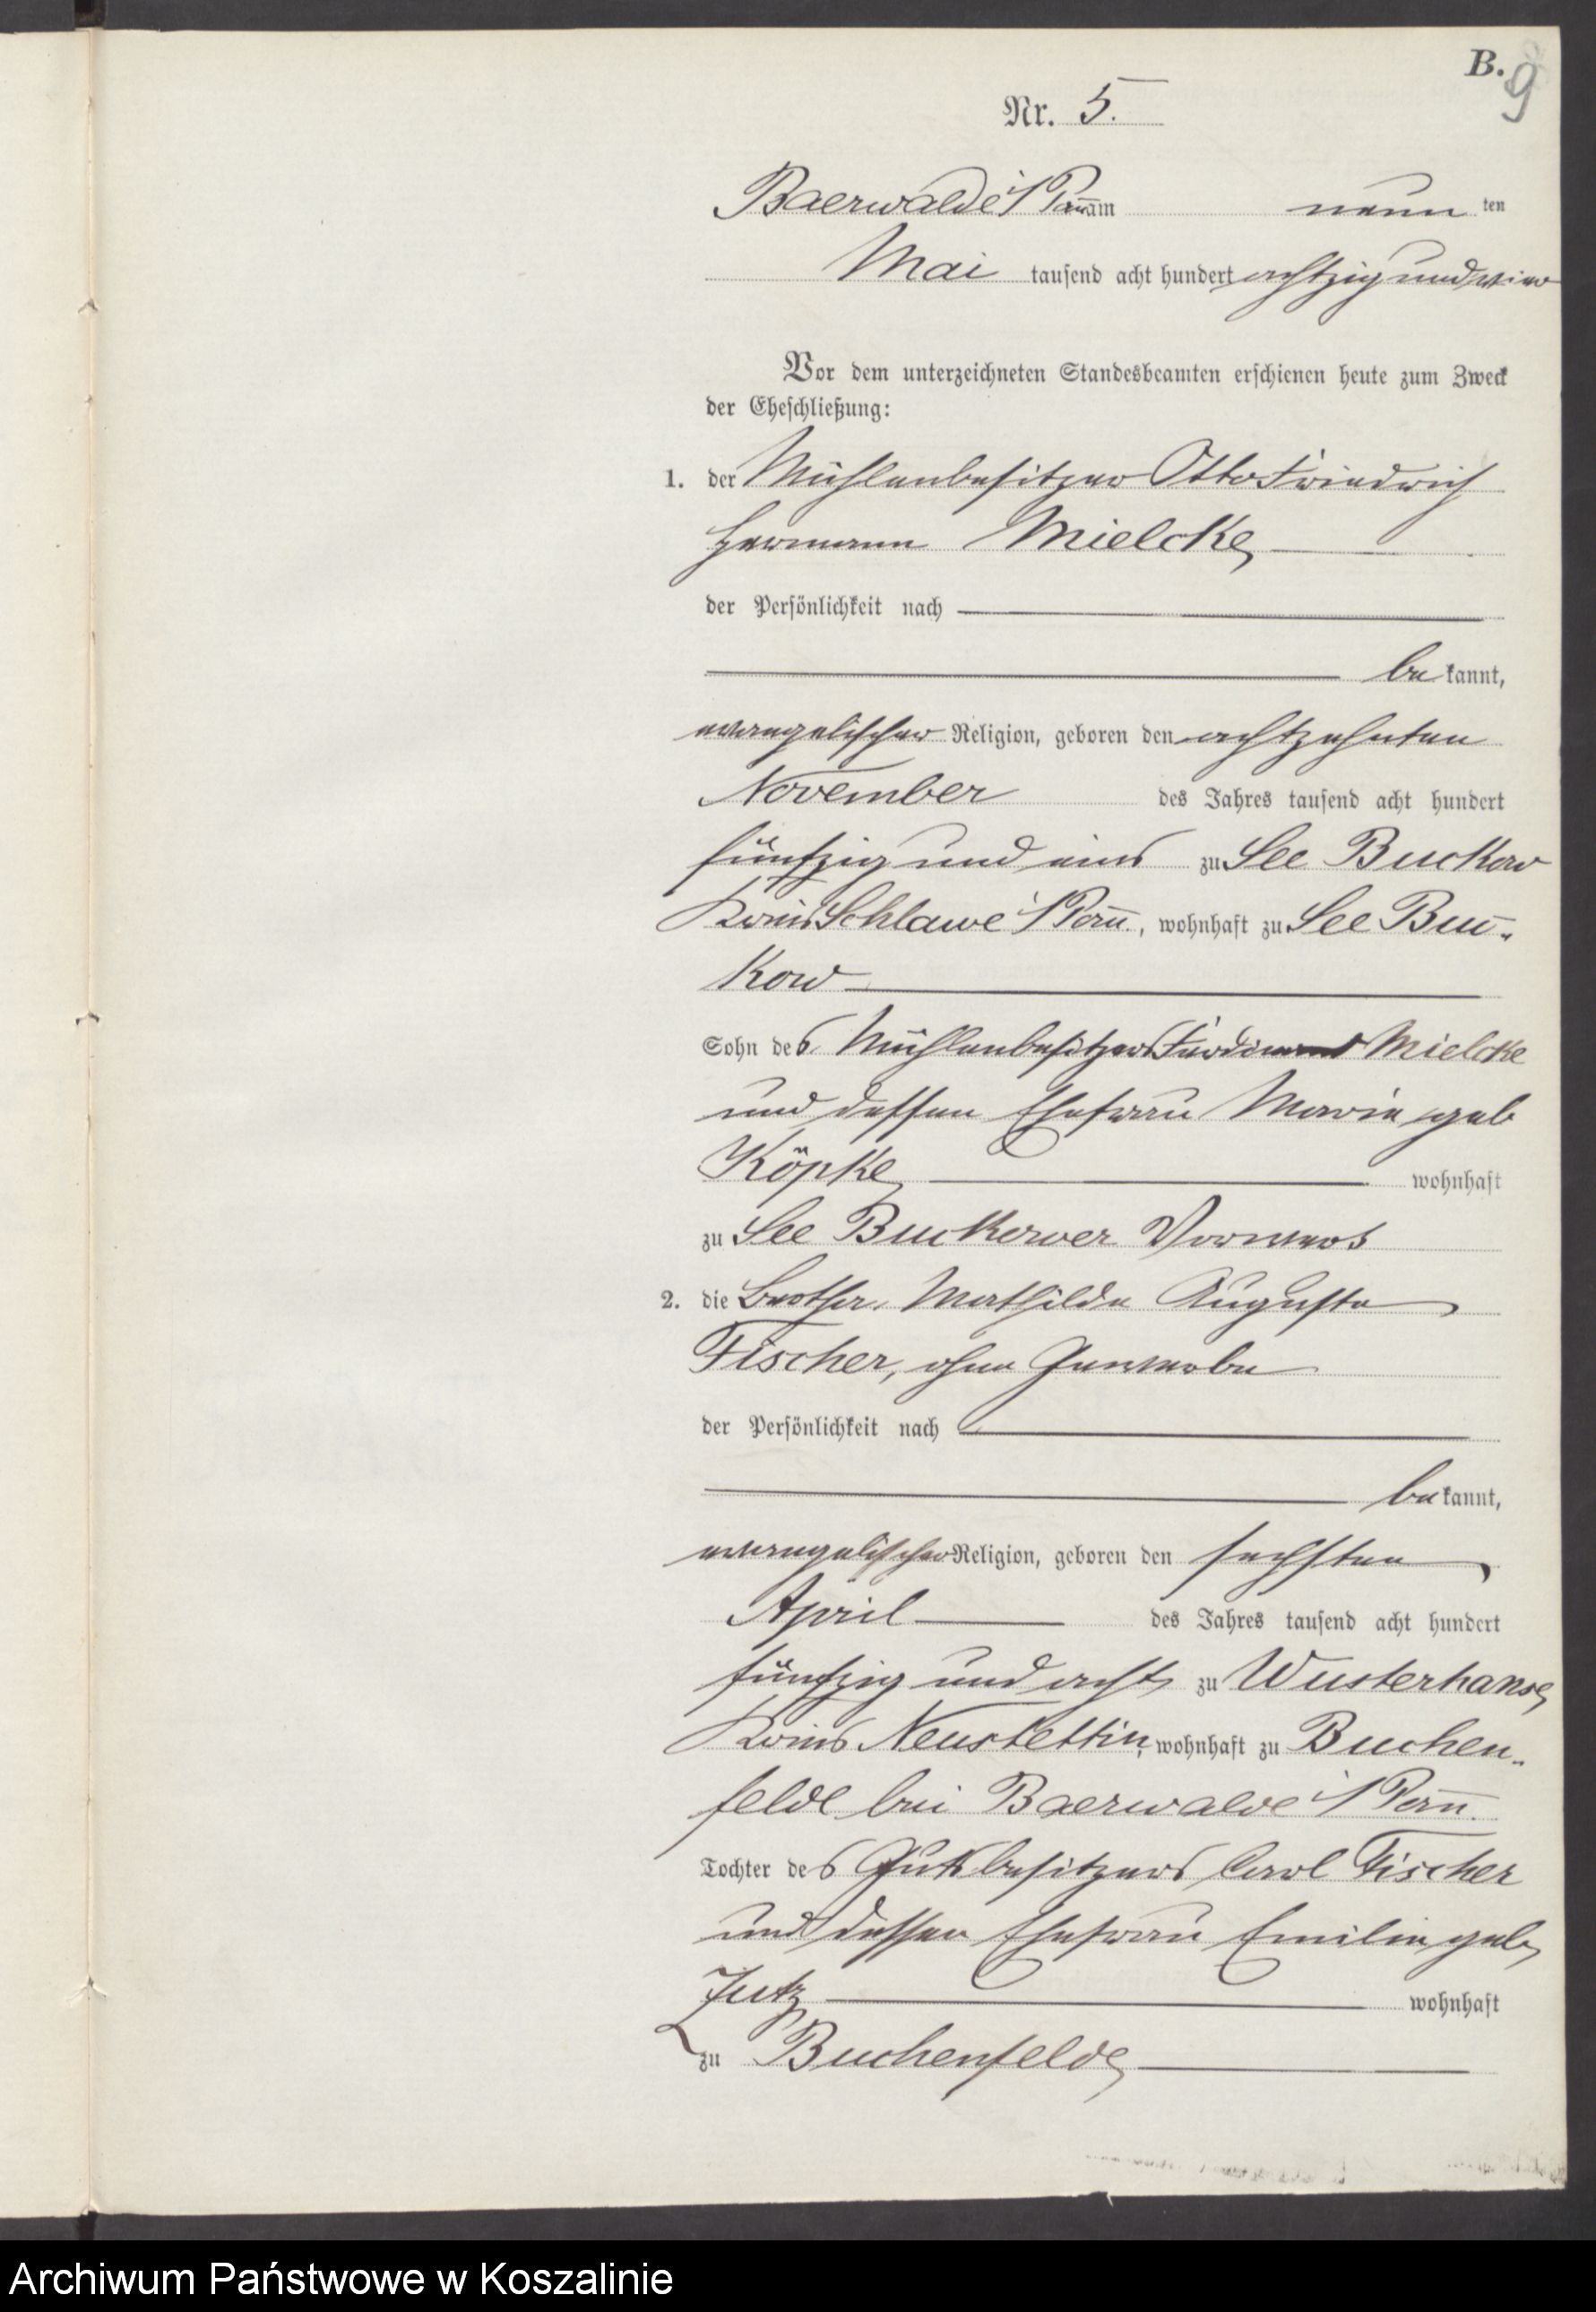 B.
9
Nr. 5.
Baerwalde i/Pom am neun ten
Mai tausend acht hundert achtzig und vier
Vor dem unterzeichneten Standesbeamten erschienen heute zum Zweck
der Eheschließung:
1. der Mühlenbesitzer Otto Friedrich
Hermann Mielcke,
der Persönlichkeit nach
be kannt,
evangelischer Religion, geboren den achtzehnten
November des Jahres tausend acht hundert
fünfzig und eins zu See Buckow
Kreis Schlawe i/Pom̅., wohnhaft zu See Buc-
kow
Sohn des Mühlenbesitzers Ferdinand Mielcke
und dessen Ehefrau Marie geb
Köpke, wohnhaft
zu See Buckower Vorwerk
2. die Bertha, Mathilde Auguste
Fischer, ohne Gewerbe
der Persönlichkeit nach
be kannt,
evangelischer Religion, geboren den sechsten
April des Jahres tausend acht hundert
fünfzig und acht zu Wusterhanse,
Kreis Neustettin, wohnhaft zu Buchen-
felde bei Baerwalde i/Pom̅.
Tochter des Gutsbesitzers Carl Fischer
und dessen Ehefrau Emilie geb,
wohnhaft
zu Buchenfelde,
Archiwum Państwowe w Koszalinie